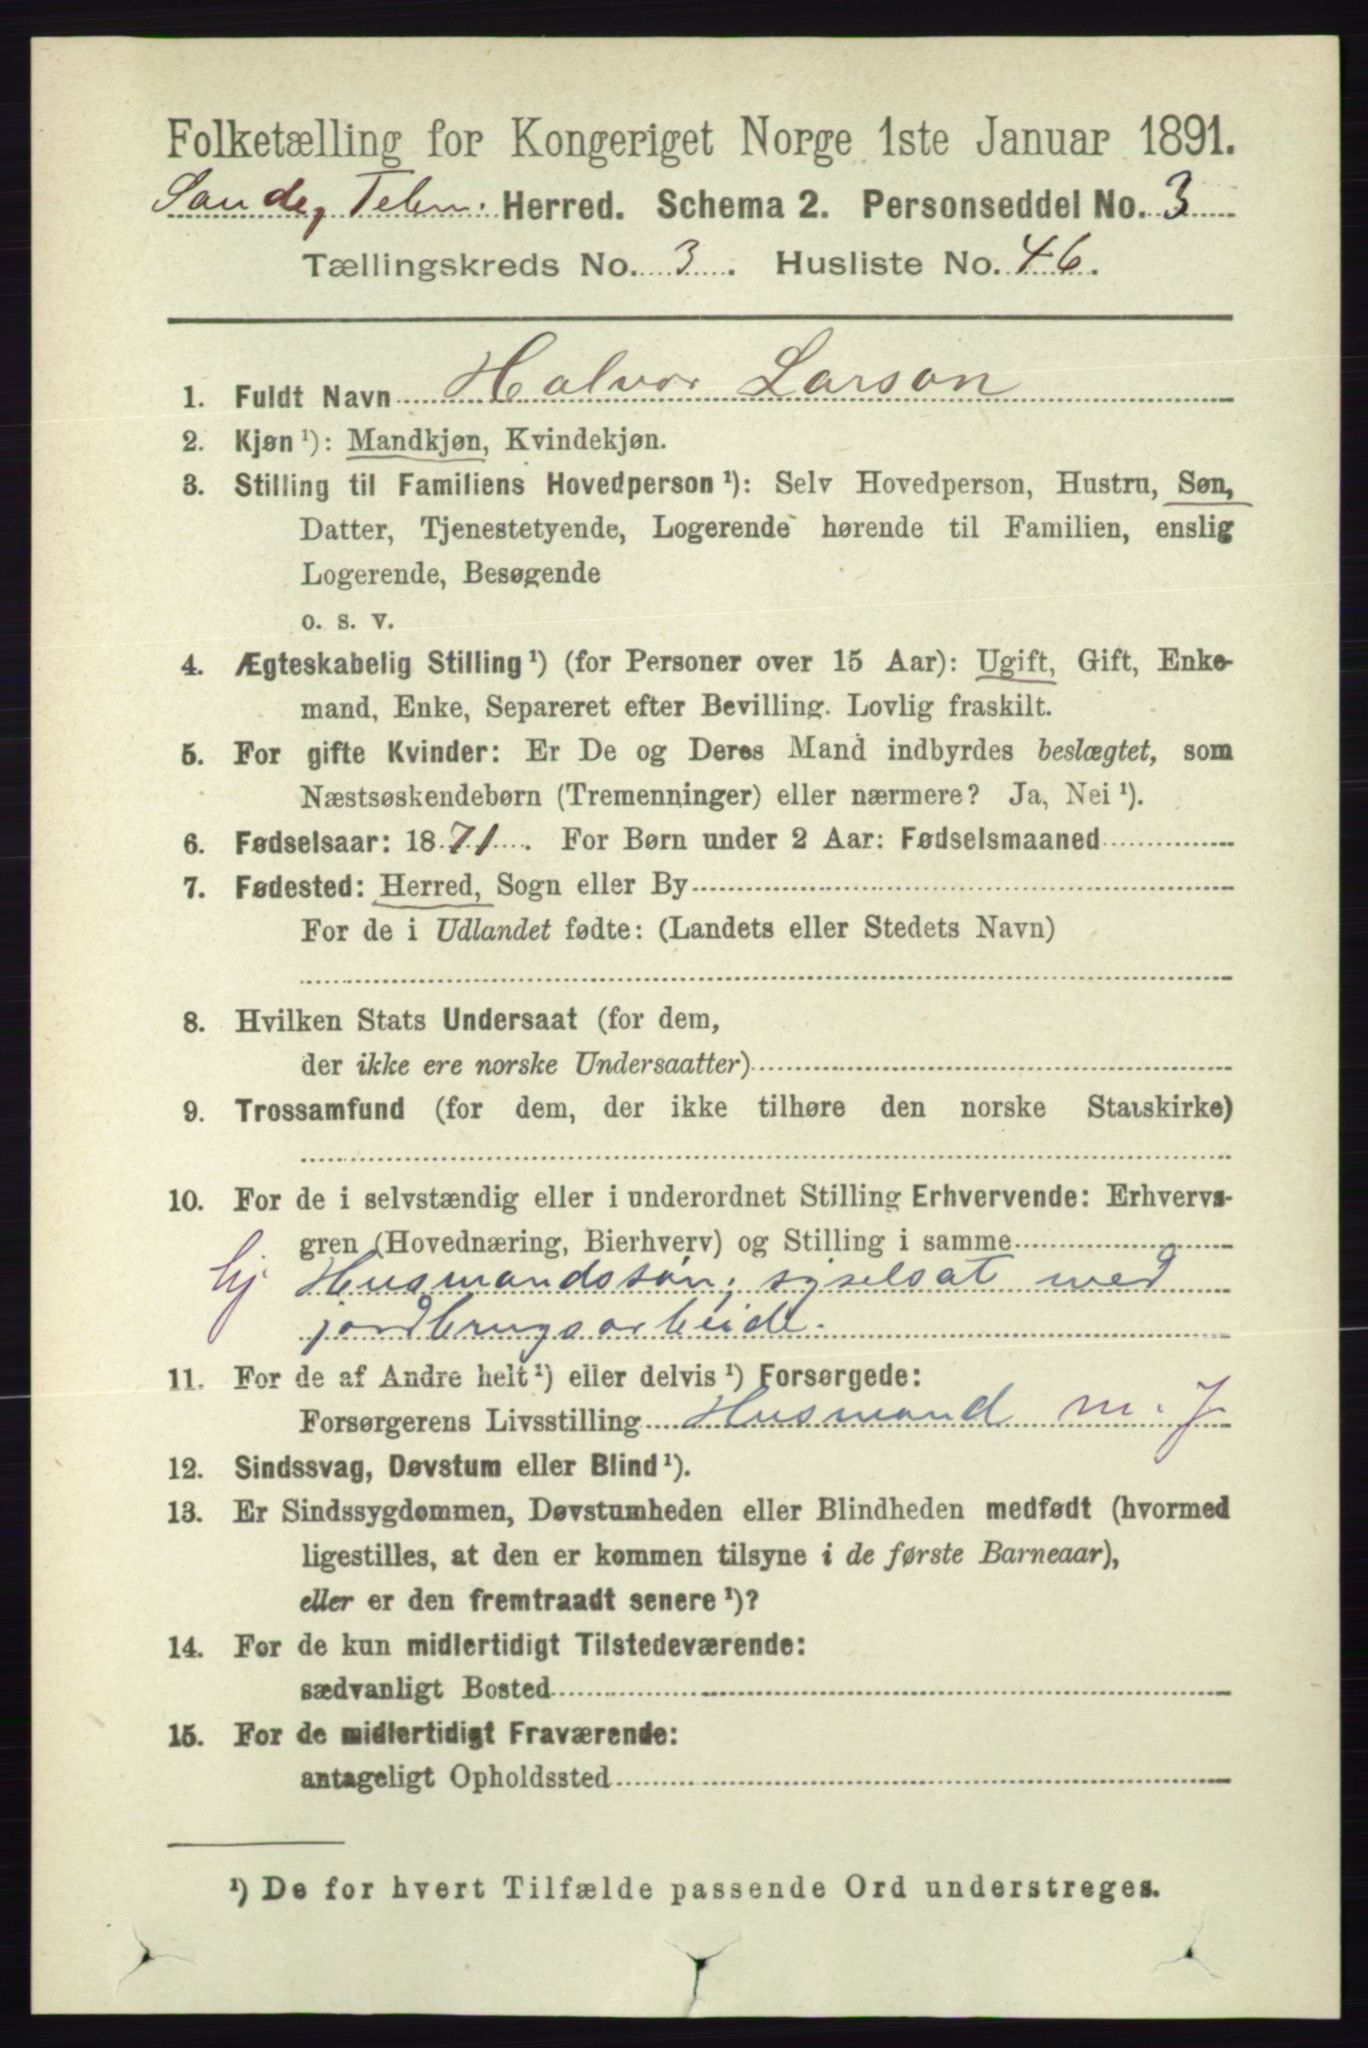 Folketælling for Kongeriget Norge 1ste Januar 1891.
Sande, Telem. Herred. Schema 2. Personseddel No. 3
Tællingskreds No. 3. Husliste No. 46.
1. Fuldt Navn Halvor Larson
2. Kjøn¹): Mandkjøn, Kvindekjøn.
3. Stilling til Familiens Hovedperson¹): Selv Hovedperson, Hustru, Søn,
Datter, Tjenestetyende, Logerende hørende til Familien, enslig
Logerende, Besøgende
o. s. v.
4. Ægteskabelig Stilling¹) (for Personer over 15 Aar): Ugift, Gift, Enke-
mand, Enke, Separeret efter Bevilling. Lovlig fraskilt.
5. For gifte Kvinder: Er De og Deres Mand indbyrdes beslægtet, som
Næstsøskendebørn (Tremenninger) eller nærmere? Ja, Nei¹).
6. Fødselsaar: 1871. For Børn under 2 Aar: Fødselsmaaned
7. Fødested: Herred, Sogn eller By
For de i Udlandet fødte: (Landets eller Stedets Navn)
8. Hvilken Stats Undersaat (for dem,
der ikke ere norske Undersaatter)
9. Trossamfund (for dem, der ikke tilhøre den norske Statskirke)
10. For de i selvstændig eller i underordnet Stilling Erhvervende: Erhvervs-
gren (Hovednæring, Bierhverv) og Stilling i samme
hj Husmandssøn; syselsat med
jordbrugsarbeide.
11. For de af Andre helt¹) eller delvis¹) Forsørgede:
Forsørgerens Livsstilling Husmand m. J
12. Sindssvag, Døvstum eller Blind¹).
13. Er Sindssygdommen, Døvstumheden eller Blindheden medfødt (hvormed
ligestilles, at den er kommen tilsyne i de første Barneaar),
eller er den fremtraadt senere¹)?
14. For de kun midlertidigt Tilstedeværende:
sædvanligt Bosted
15. For de midlertidigt Fraværende:
antageligt Opholdssted
¹) De for hvert Tilfælde passende Ord understreges.